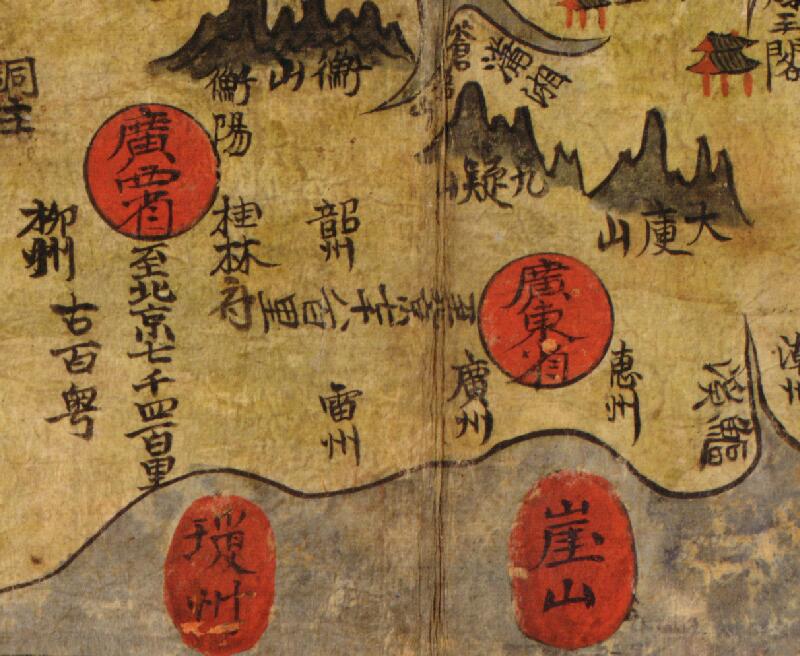 洞
衡山
衡陽
蒼
瀟湘
閣
廣西省
至北京七千四百里
桂林府
柳州
古百粤
韶州
九疑山
大庾山
廣東省
至北京七千八百里
廣州
惠州
雷州
漳州
瓊州
崖山